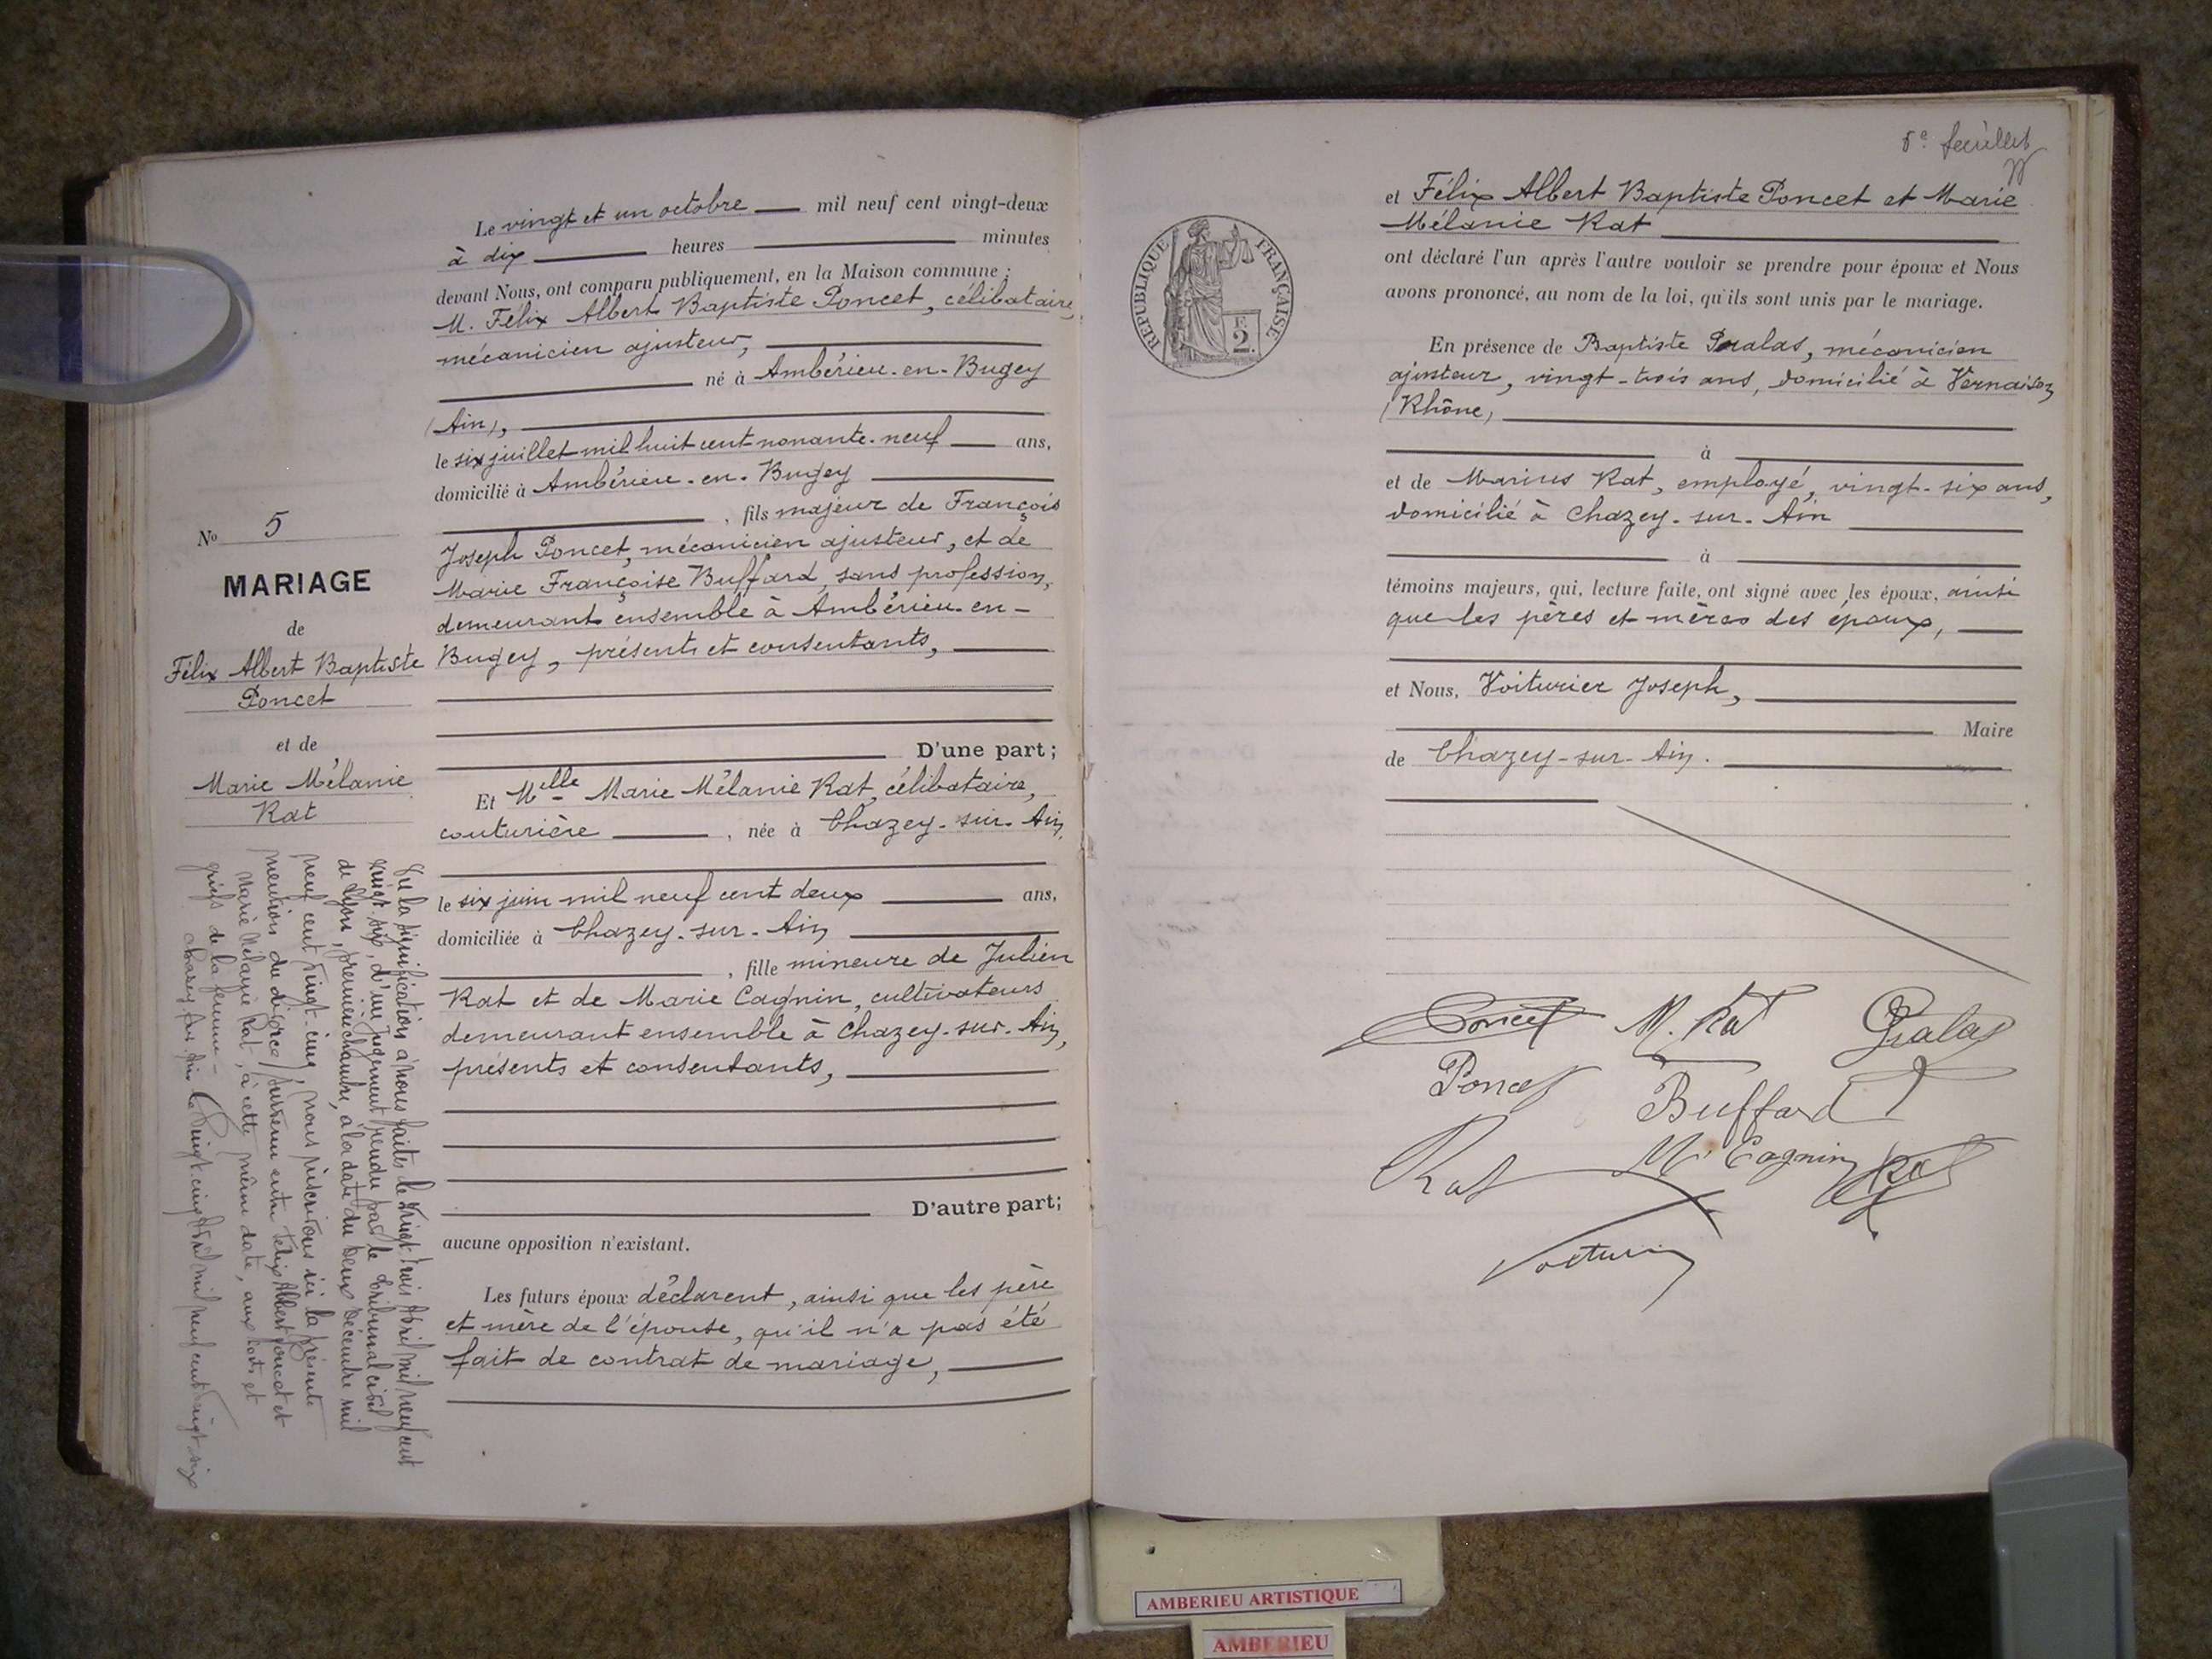 Le vingt et un octobre mil neuf cent vingt-deux
à dix heures minutes
devant Nous, ont comparu publiquement, en la Maison commune :
M. Félix Albert Baptiste Poncet, célibataire,
mécanicien ajusteur,
né à Ambérieu-en-Bugey
(Ain),
le six juillet mil huit cent nonante-neuf ans,
domicilié à Ambérieu-en-Bugey
, fils majeur de François
Joseph Poncet, mécanicien ajusteur, et de
Marie Françoise Buffard, sans profession,
demeurant ensemble à Ambérieu-en-
Bugey, présents et consentants,
D'une part;
Et Melle Marie Mélanie Rat, célibataire,
couturière , née à Chazey-sur-Ain,
le six juin mil neuf cent deux ans,
domiciliée à Chazey-sur-Ain
, fille mineure de Julien
Rat et de Marie Cagnin, cultivateurs
demeurant ensemble à Chazey-sur-Ain,
présents et consentants,
D'autre part;
aucune opposition n'existant.
Les futurs époux déclarent, ainsi que les père
et mère de l'épouse, qu'il n'a pas été
fait de contrat de mariage,
No 5
MARIAGE
de
Félix Albert Baptiste
Poncet
et de
Marie Mélanie
Rat
Vu la signification à nous faite le vingt trois Avril mil neuf cent
vingt-six, d'un Jugement rendu par le Tribunal civil
de Lyon, première chambre, à la date du deux Décembre mil
neuf cent vingt-cinq, nous inscrivons ici la présente
mention du divorce survenu entre Félix Albert Poncet et
Marie Mélanie Rat, à cette même date, aux torts et
griefs de la femme -
Chazey sur Ain le vingt-cinq Avril mil neuf cent vingt six
8e feuillet
RÉPUBLIQUE FRANÇAISE
2 F.
et Félix Albert Baptiste Poncet et Marie
Mélanie Rat
ont déclaré l'un après l'autre vouloir se prendre pour époux et Nous
avons prononcé, au nom de la loi, qu'ils sont unis par le mariage.
En présence de Baptiste Pralas, mécanicien
ajusteur, vingt-trois ans, domicilié à Vernaison
(Rhône)
à
et de Marius Rat, employé, vingt-six ans,
domicilié à Chazey-sur-Ain
à
témoins majeurs, qui, lecture faite, ont signé avec les époux, ainsi
que les pères et mères des époux,
et Nous, Voiturier Joseph,
Maire
de Chazey-sur-Ain.
Poncet M. Rat Pralas
Poncet Buffard
Rat M. Cagnin Rat
Voiturier
AMBERIEU ARTISTIQUE
AMBERIEU